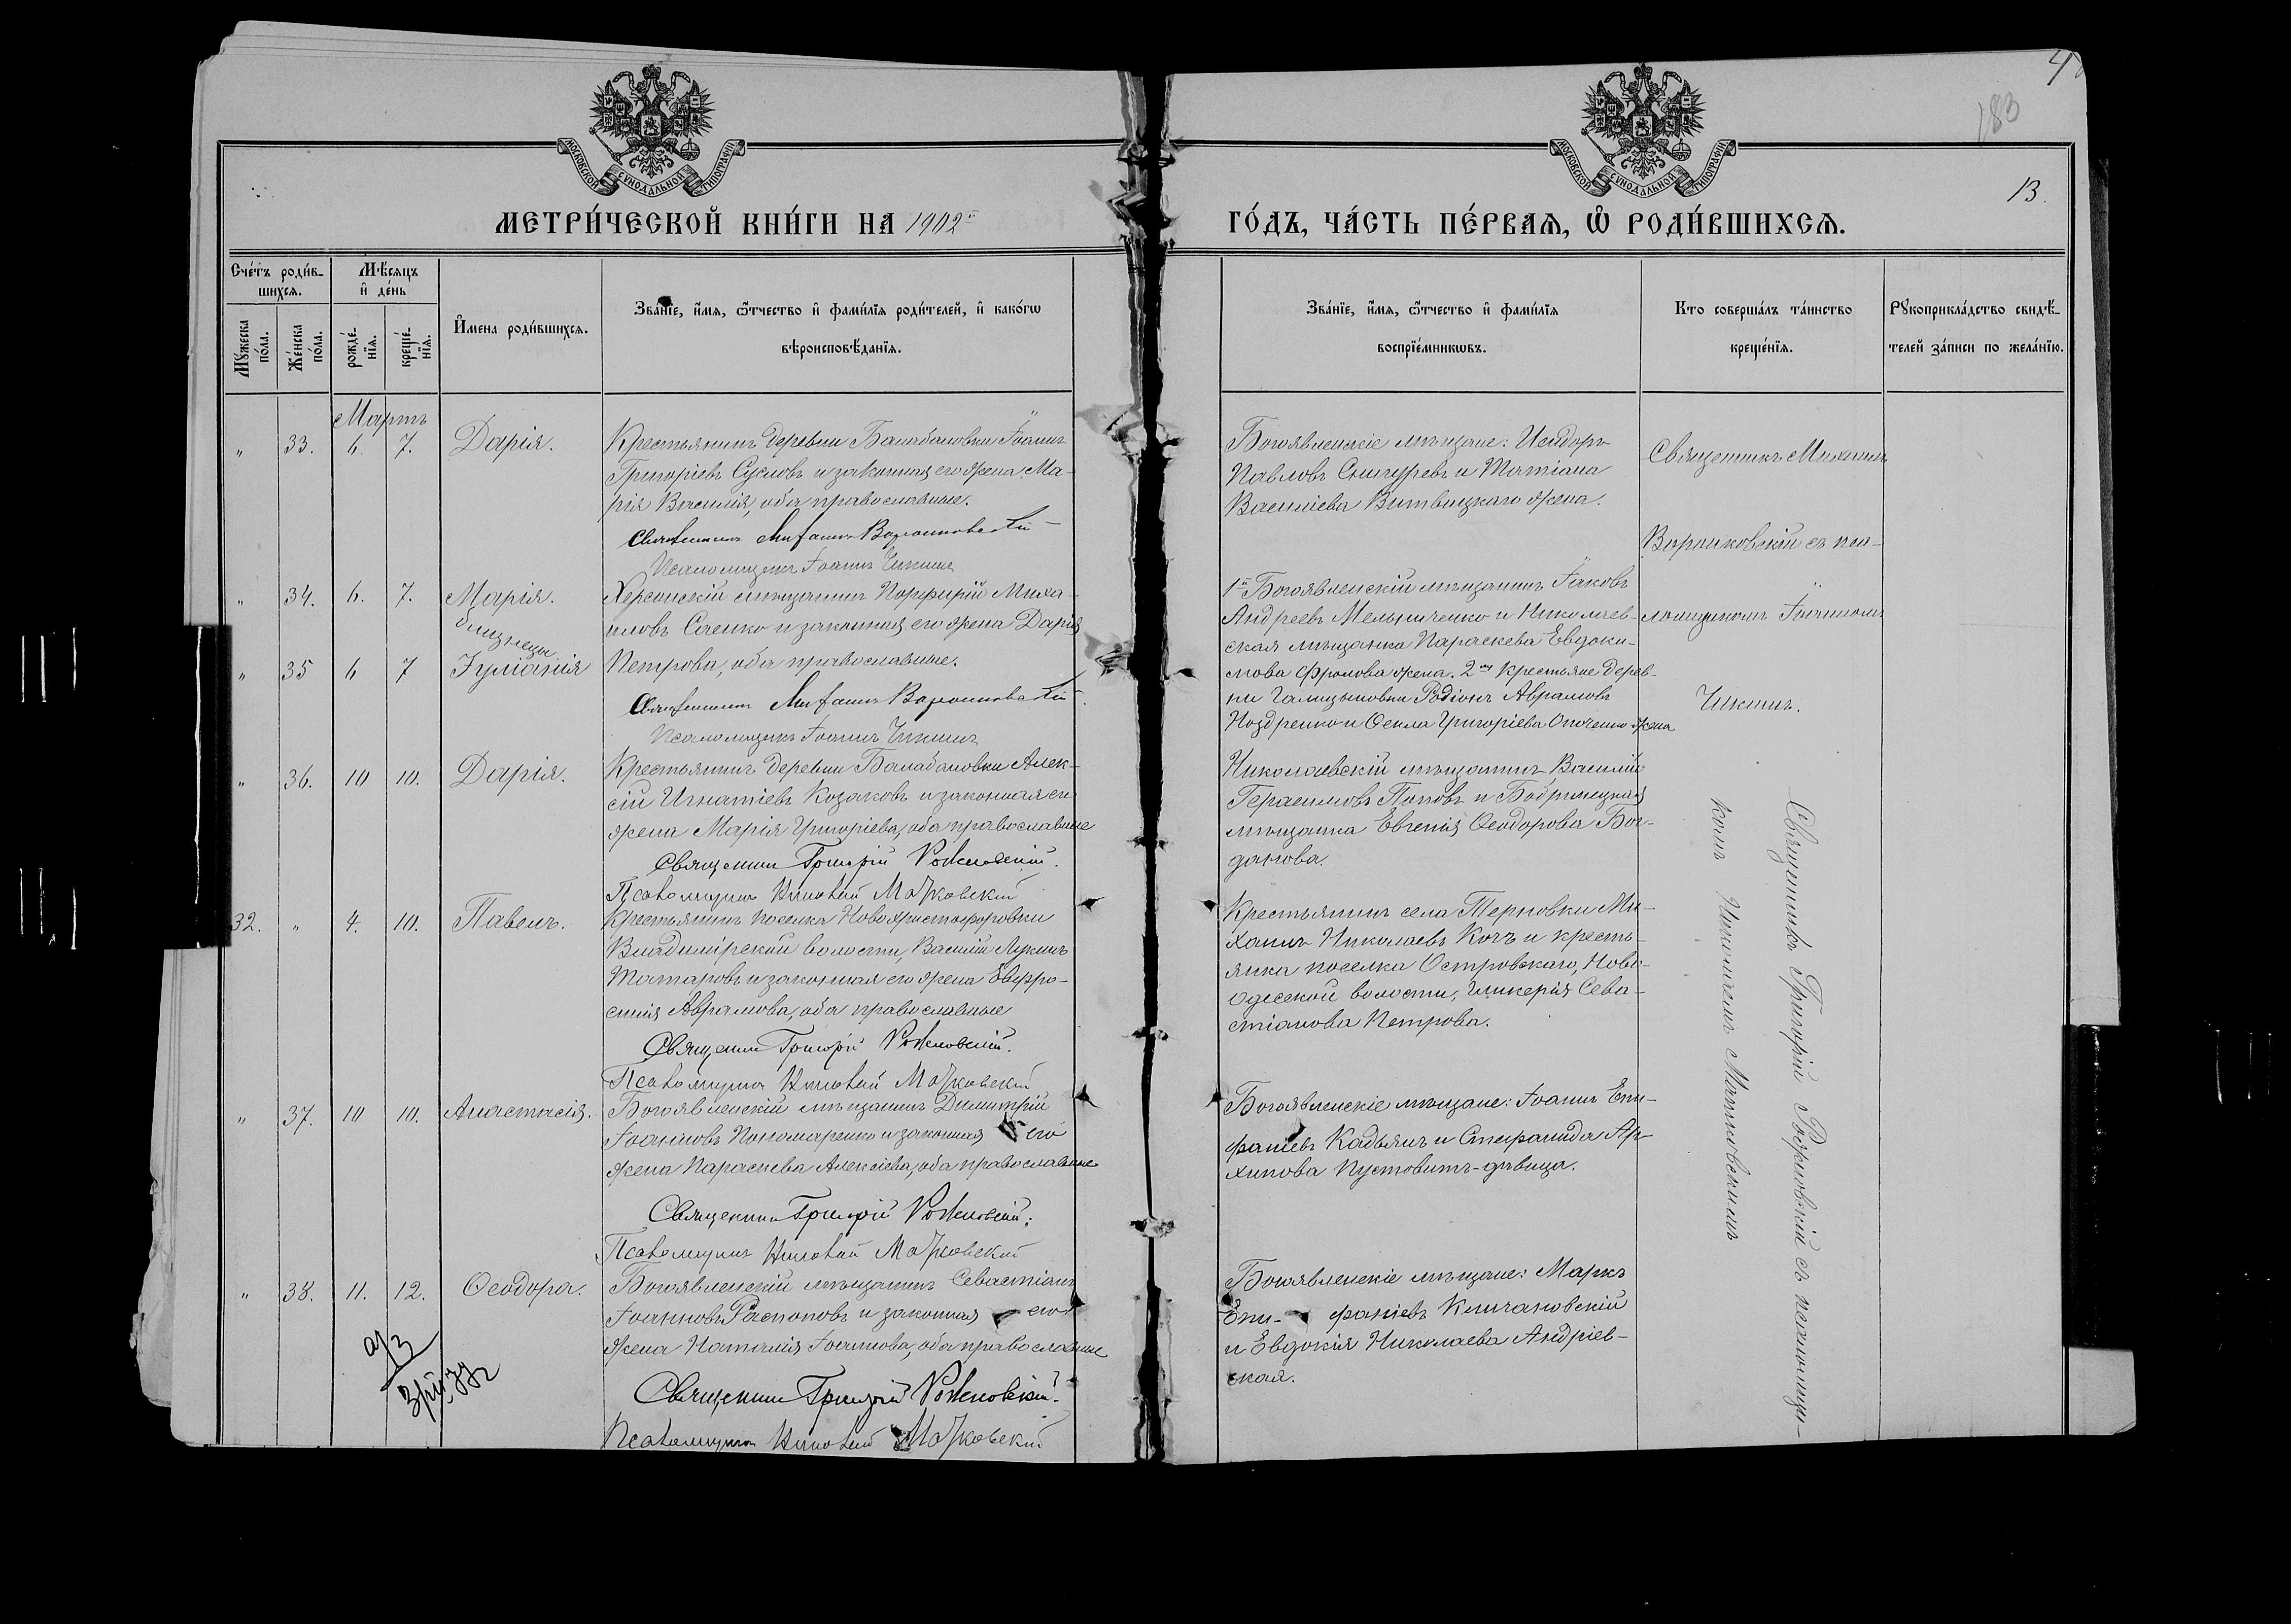 4
183
13.
МОСКОВСКОЙ СѴНОДАЛЬНОЙ ТИПОГРАФІИ
МОСКОВСКОЙ СѴНОДАЛЬНОЙ ТИПОГРАФІИ
МЕТРИ́ЧЕСКОЙ КНИ́ГИ НА 1902й
ГО́ДЪ, ЧА́СТЬ ПЕ́РВАѦ, Ѡ҆ РОДИ́ВШИХСѦ.
Сче́тъ роди́в-
шихсѧ.
Мѣ́сѧцъ
и҆ де́нь
Мꙋ́жеска по́ла.
Же́нска по́ла.
рожде́-
нїѧ.
креще́-
нїѧ.
И҆мена роди́вшихсѧ.
Зва́нїе, и҆́мѧ, ѻ҆́тчество и҆ фами́лїѧ роди́телей, и҆ како́гѡ
вѣроисповѣ́данїѧ.
Зва́нїе, и҆́мѧ, ѻ҆́тчество и҆ фами́лїѧ
воспрїе́мникѡвъ.
Кто соверша́лъ та́инство
креще́нїѧ.
Рꙋкоприкла́дство свидѣ́-
телей за́писи по жела́нїю.
Мартъ
" 33. 6. 7. Дарія.
Крестьянинъ деревни Балабановки Іоаннъ
Григоріевъ Сусловъ и законная его жена Ма-
рія Василія, оба православные.
Священникъ Михаилъ Воронковскій
Псаломщикъ Іоаннъ Чикинъ
Богоявленскіе мѣщане: Исидоръ
Павловъ Снигуревъ и Татіана
Василіева Витвицкаго жена.
Священникъ Михаилъ
Воронковскій съ пса-
ломщикомъ Іоанномъ
Чикинъ.
" 34. 6. 7. Марія.
близнецы
" 35 6 7 Іуліанія
Херсонскій мѣщанинъ Порфирій Миха-
иловъ Саенко и законная его жена Дарія
Петрова, оба православные.
Священникъ Михаилъ Воронковскій
Псаломщикъ Іоаннъ Чикинъ
1й Богоявленскій мѣщанинъ Іаковъ
Андреевъ Мельниченко и Николаев-
ская мѣщанка Параскева Евдоки-
мова Фролова жена. 2й крестьяне дерев-
ни Галицыновки Родіонъ Аврамовъ
Ноздренко и Ѳекла Григоріева Опоченко жена
" 36. 10 10. Дарія.
Крестьянинъ деревни Балабановки Алек-
сій Игнатіевъ Козаковъ и законная его
жена Марія Григоріева, оба православные
Священникъ Григорій Рожновскій.
Псаломщикъ Николай Матковскій
Николаевскій мѣщанинъ Василій
Герасимовъ Поповъ и Бобринецкая
мѣщанка Евгенія Ѳеодорова Бог-
данова.
Священникъ Григорій Рожновскій съ псаломщи-
комъ Николаемъ Матковскимъ
32. " 4. 10. Павелъ.
Крестьянинъ поселка Новохристофоровки
Владимірской волости, Василій Лукинъ
Татаровъ и законная его жена Евфро-
синія Аврамова, оба православные
Священникъ Григорій Рожновскій.
Псаломщикъ Николай Матковскій
Крестьянинъ села Терновки Ми-
хаилъ Николаевъ Кочъ и кресть-
янка поселка Островскаго, Ново-
одесской волости, Гликерія Сева-
стіанова Петрова.
" 37. 10 10. Анастасія.
Богоявленскій мѣщанинъ Димитрій
Іоанновъ Пономаренко и законная его
жена Параскева Алексіева, оба православные
Священникъ Григорій Рожновскій.
Псаломщикъ Николай Матковскій
Богоявленскіе мѣщане: Іоаннъ Епи-
фаніевъ Кадьянъ и Стефанида Ар-
хипова Пустовитъ-дѣвица.
" 38. 11. 12. Ѳеодора.
Богоявленскій мѣщанинъ Севастіанъ
Іоанновъ Распоповъ и законная его
жена Наталія Іоаннова, оба православные
Священникъ Григорій Рожновскій.
Псаломщикъ Николай Матковскій
Богоявленскіе мѣщане: Маркъ
Епи- фаніевъ Кличановскій
и Евдокія Николаева Андріев-
ская.